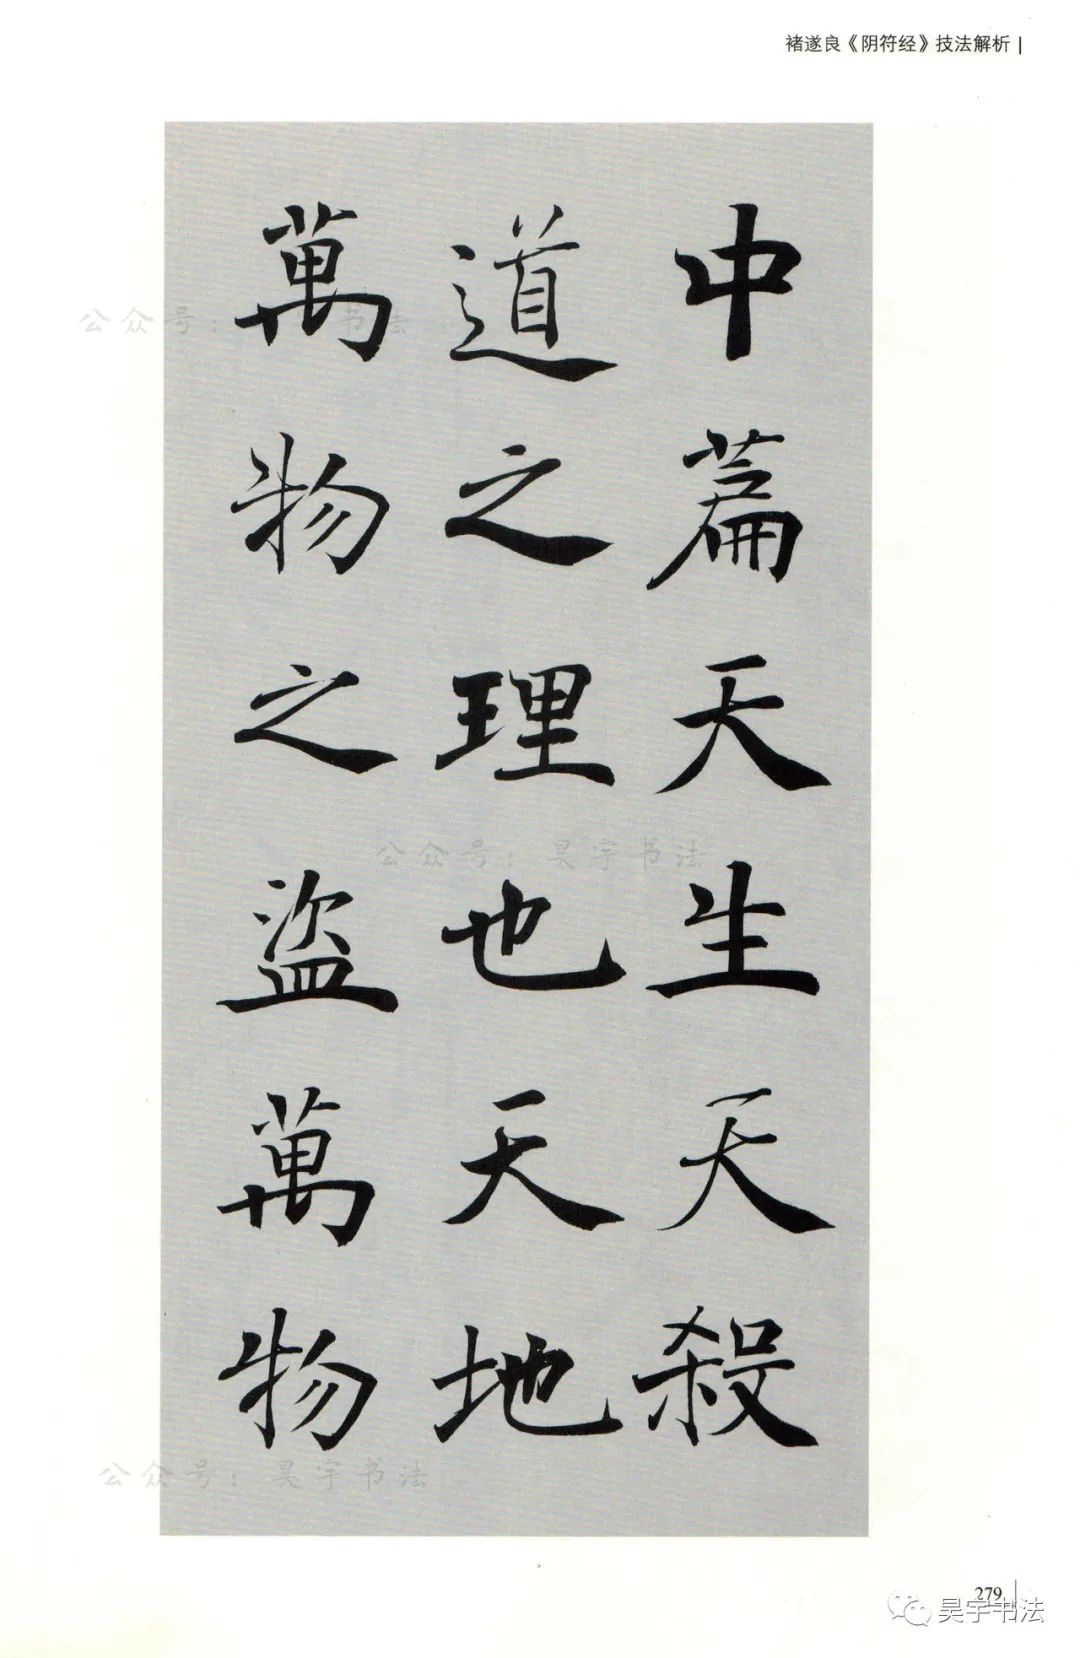 褚遂良《阴符经》技法解析
中篇天生天殺
道之理也天地
萬物之盜萬物
公众号：书法
公众号：昊宇书法
公众号：昊宇书法
279
昊宇书法